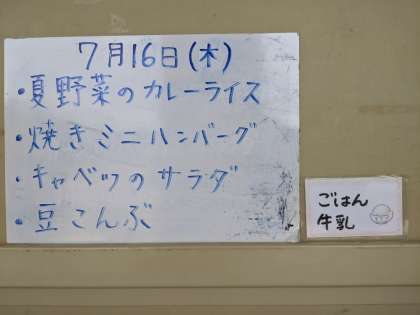 7月16日(木)
・夏野菜のカレーライス
・焼きミニハンバーグ
・キャベツのサラダ
・豆こんぶ
ごはん
牛乳